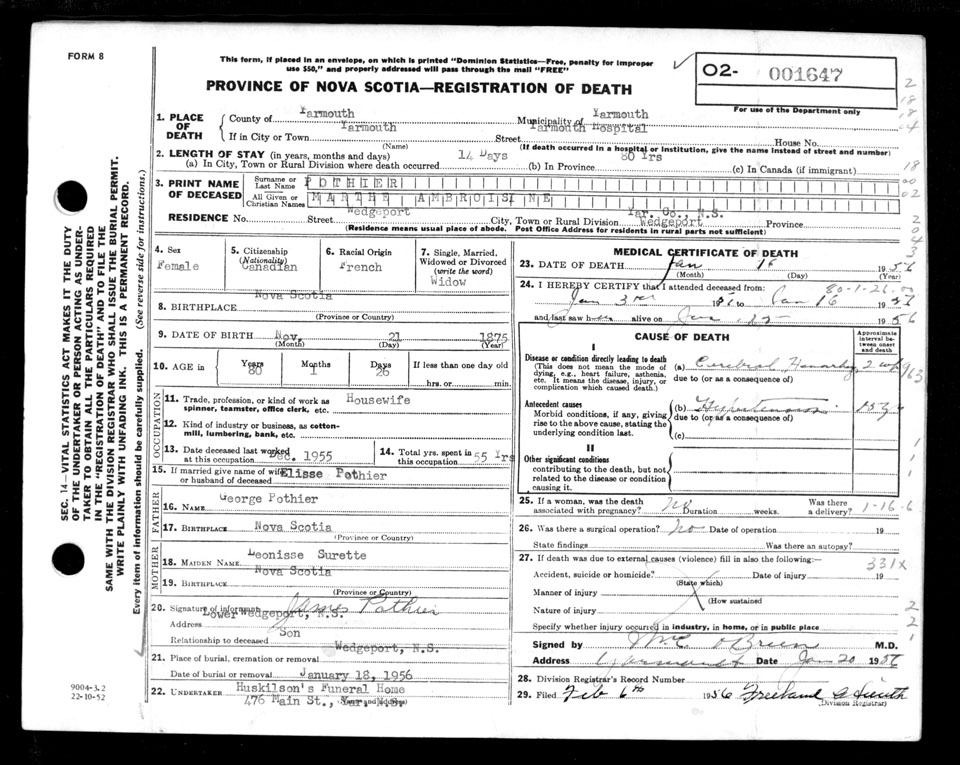 FORM 8
This form, if placed in an envelope, on which is printed "Dominion Statistics—Free, penalty for improper
use $50," and properly addressed will pass through the mail "FREE"
PROVINCE OF NOVA SCOTIA—REGISTRATION OF DEATH
O2- 001647
For use of the Department only
1. PLACE OF DEATH
County of Yarmouth Municipality of Yarmouth
If in City or Town Yarmouth Street Yarmouth Hospital House No.
(Name) (If death occurred in a hospital or institution, give the name instead of street and number)
2. LENGTH OF STAY (in years, months and days) 14 Days 80 Yrs
(a) In City, Town or Rural Division where death occurred (b) In Province (c) In Canada (if immigrant)
3. PRINT NAME OF DECEASED
Surname or Last Name POTHIER
All Given or Christian Names MARTHE AMBROISINE
Wedgeport Yar. Co., N.S.
RESIDENCE No. Street City, Town or Rural Division Wedgeport Province
(Residence means usual place of abode. Post Office Address for residents in rural parts not sufficient)
4. Sex
Female
5. Citizenship
(Nationality)
Canadian
6. Racial Origin
French
7. Single, Married, Widowed or Divorced
(write the word)
Widow
Nova Scotia
8. BIRTHPLACE
(Province or Country)
9. DATE OF BIRTH Nov. 21 1875
(Month) (Day) (Year)
10. AGE in Years 80 Months 1 Days 26 If less than one day old
hrs. or min.
OCCUPATION
11. Trade, profession, or kind of work as spinner, teamster, office clerk, etc. Housewife
12. Kind of industry or business, as cotton-mill, lumbering, bank, etc.
13. Date deceased last worked at this occupation Dec. 1955
14. Total yrs. spent in this occupation 55 Yrs
15. If married give name of wife or husband of deceased Elisse Pothier
FATHER
George Pothier
16. NAME
17. BIRTHPLACE Nova Scotia
(Province or Country)
MOTHER
Leonisse Surette
18. MAIDEN NAME
Nova Scotia
19. BIRTHPLACE
(Province or Country)
20. Signature of informant James Pothier
Lower Wedgeport, N.S.
Address
Son
Relationship to deceased
Wedgeport, N.S.
21. Place of burial, cremation or removal
Date of burial or removal January 18, 1956
22. UNDERTAKER Huskilson's Funeral Home
476 Main St., Yar. N.S.
(Name and Address)
MEDICAL CERTIFICATE OF DEATH
23. DATE OF DEATH Jan 16 1956
(Month) (Day) (Year)
80-1-26
24. I HEREBY CERTIFY that I attended deceased from:
Jan 3rd to Jan 16
and last saw h alive on Jan 1956
CAUSE OF DEATH
Approximate interval between onset and death
I
Disease or condition directly leading to death
(This does not mean the mode of dying, e.g., heart failure, asthenia, etc. It means the disease, injury, or complication which caused death.)
(a) Cerebral 2
due to (or as a consequence of)
Antecedent causes
Morbid conditions, if any, giving rise to the above cause, stating the underlying condition last.
(b) Hypertension 15
due to (or as a consequence of)
(c)
II
Other significant conditions
contributing to the death, but not related to the disease or condition causing it.
25. If a woman, was the death associated with pregnancy? No Duration weeks. Was there a delivery?
1-16-6
26. Was there a surgical operation? No Date of operation 19
State findings Was there an autopsy?
27. If death was due to external causes (violence) fill in also the following:—
331x
Accident, suicide or homicide? Date of injury 19
(State which)
Manner of injury
(How sustained
Nature of injury
Specify whether injury occurred in industry, in home, or in public place
Signed by O'Brien M.D.
Address Yarmouth Date Jan 20 1956
28. Division Registrar's Record Number
29. Filed Feb 6th 1956 Freeland
(Division Registrar)
SEC. 14—VITAL STATISTICS ACT MAKES IT THE DUTY
OF THE UNDERTAKER OR PERSON ACTING AS UNDER-
TAKER TO OBTAIN ALL THE PARTICULARS REQUIRED
IN THE "REGISTRATION OF DEATH" AND TO FILE THE
SAME WITH THE DIVISION REGISTRAR WHO SHALL ISSUE THE BURIAL PERMIT.
WRITE PLAINLY WITH UNFADING INK. THIS IS A PERMANENT RECORD.
Every item of information should be carefully supplied. (See reverse side for instructions.)
9004-3.2
22-10-52